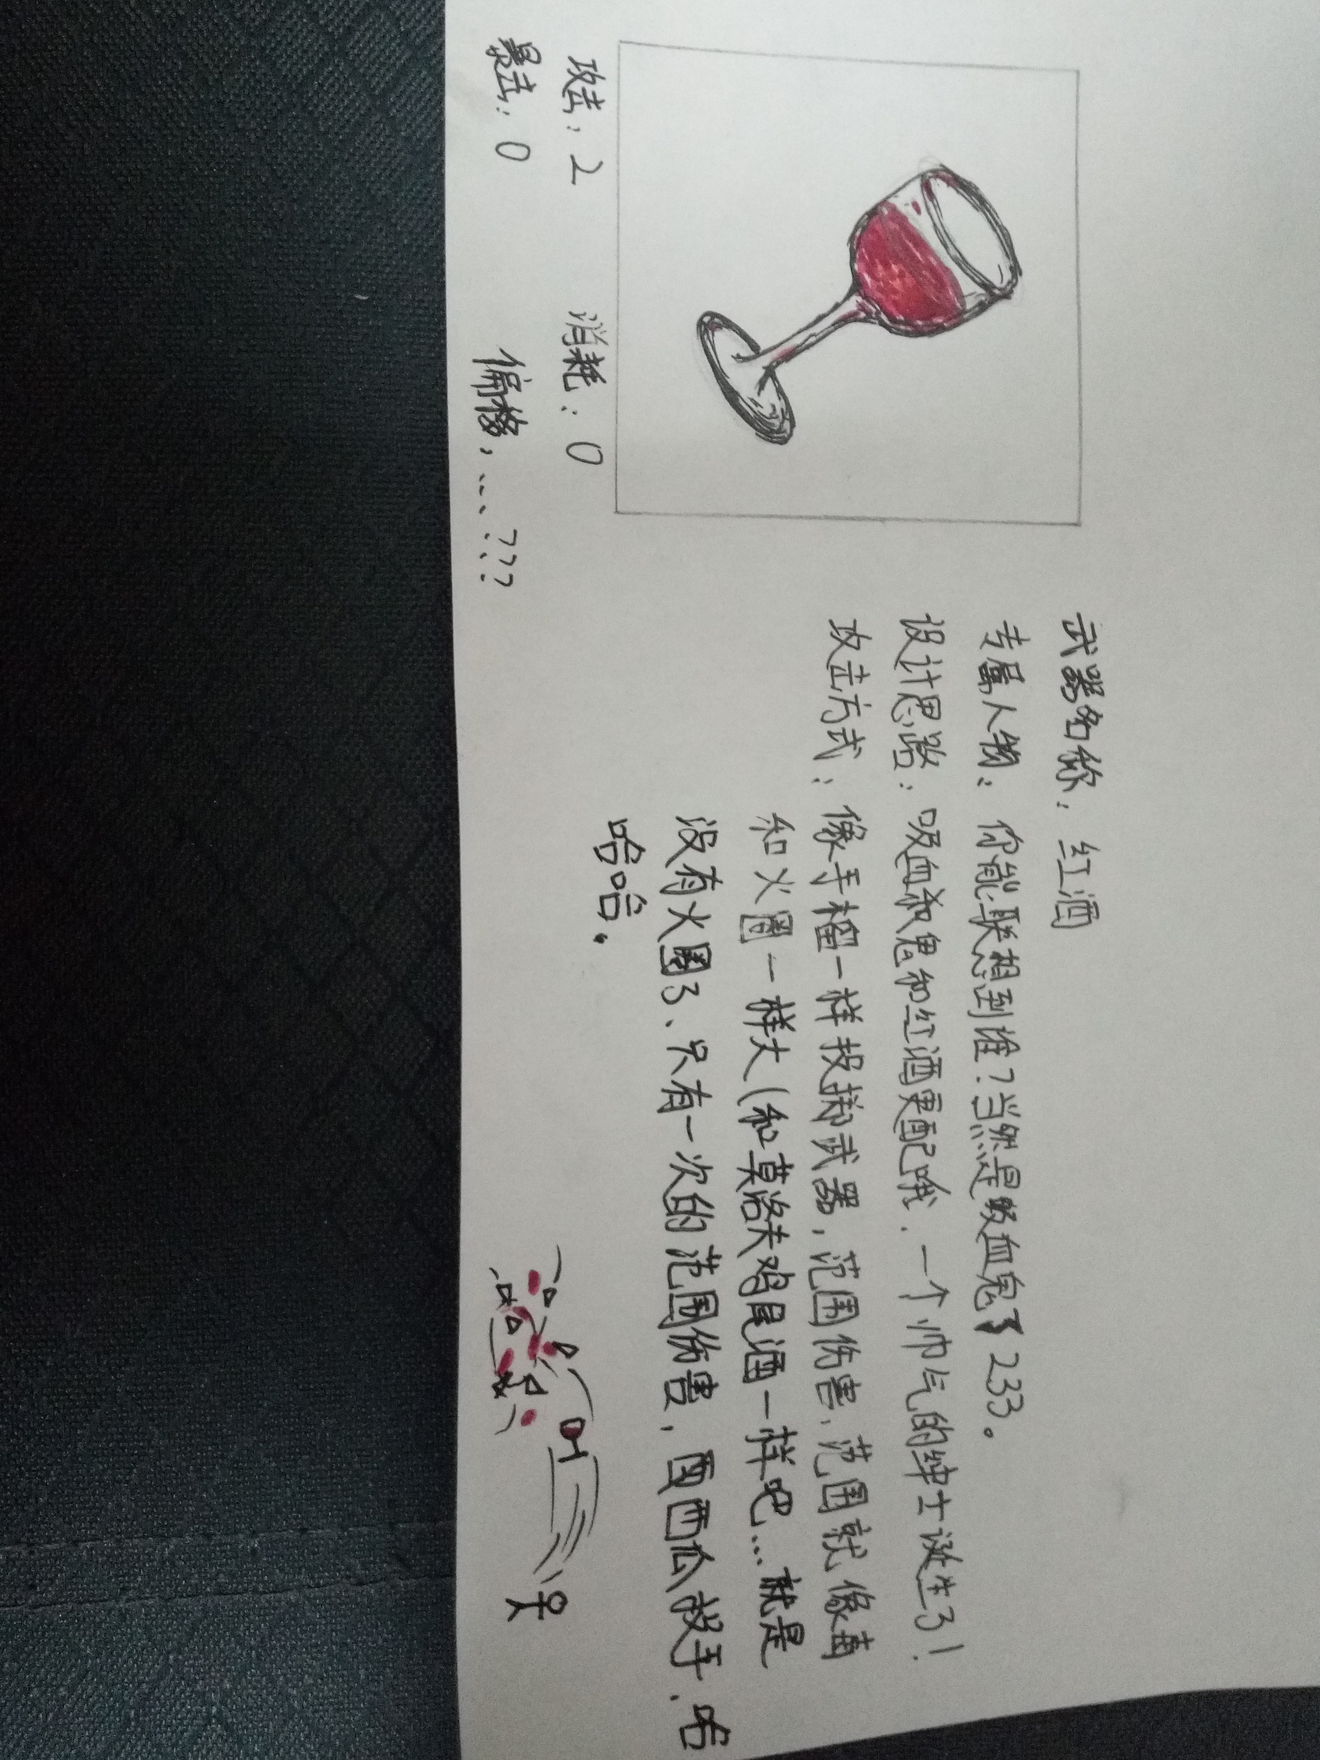 武器名称：红酒
专属人物：你能联想到谁？当然是吸血鬼了233。
设计思路：吸血鬼和红酒更配哦．一个帅气的绅士诞生了！
攻击方式：像手榴一样投掷武器，范围伤害，范围就像
和火圈一样大（和莫洛夫鸡尾酒一样吧...就是
没有火圈了、只有一次的范围伤害，西瓜投手．哈
哈哈。
攻击：2 消耗：0
暴击：0 偏移：...???